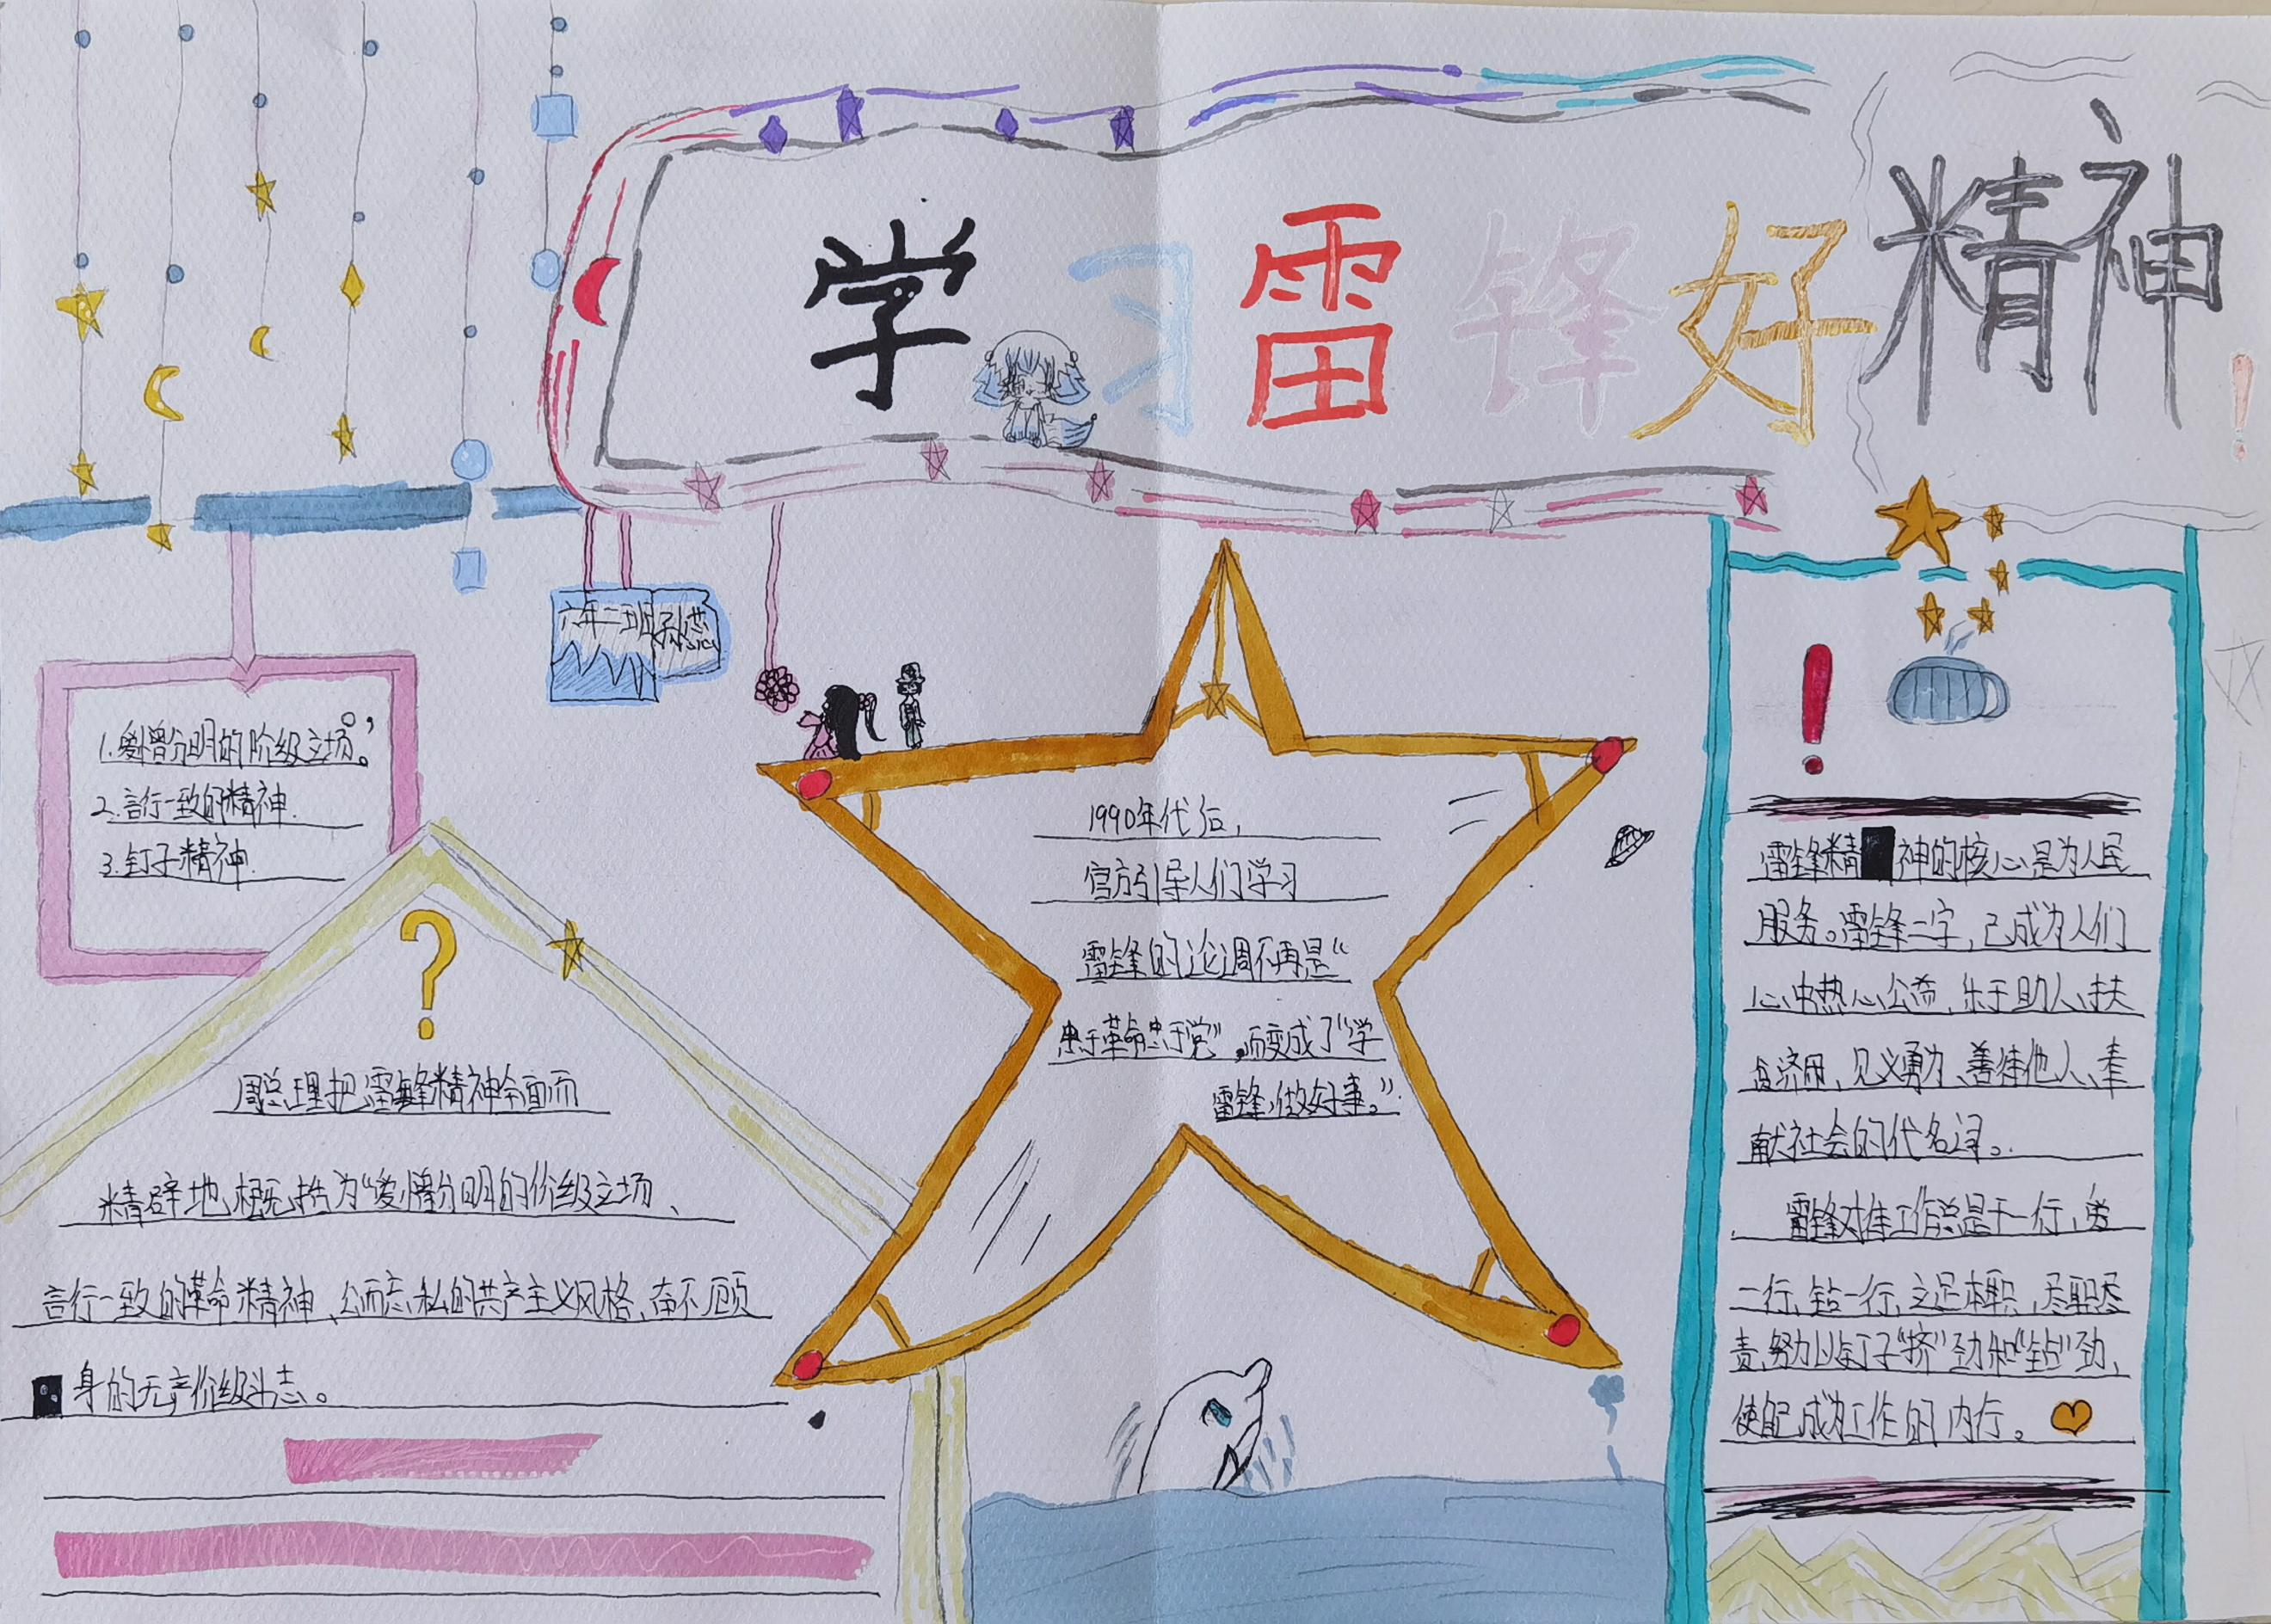 学习雷锋好精神!
六年二班
1.爱憎分明的阶级立场。
2.言行一致的精神.
3.钉子精神.
?
周总理把雷锋精神全面而
精辟地概括为“爱憎分明的价级立场、
言行一致的革命精神、公而忘私的共产主义风格、奋不顾
身的无产价级斗志。
1990年代后,
官方引导人们学习
雷锋的论调不再是“
忠于革命忠于党”,而变成了“学
雷锋,做好事。”
!
雷锋精神的核心是为人民
服务。雷锋二字,已成为人们
心中热心公益,乐于助人、扶
贫济困、见义勇为、善待他人、奉
献社会的代名词。
雷锋对待工作总是干一行,爱
一行、钻一行,立足本职,尽职尽
责,努力以钉子“挤”劲和“钻”劲,
使自己成为工作的内行。